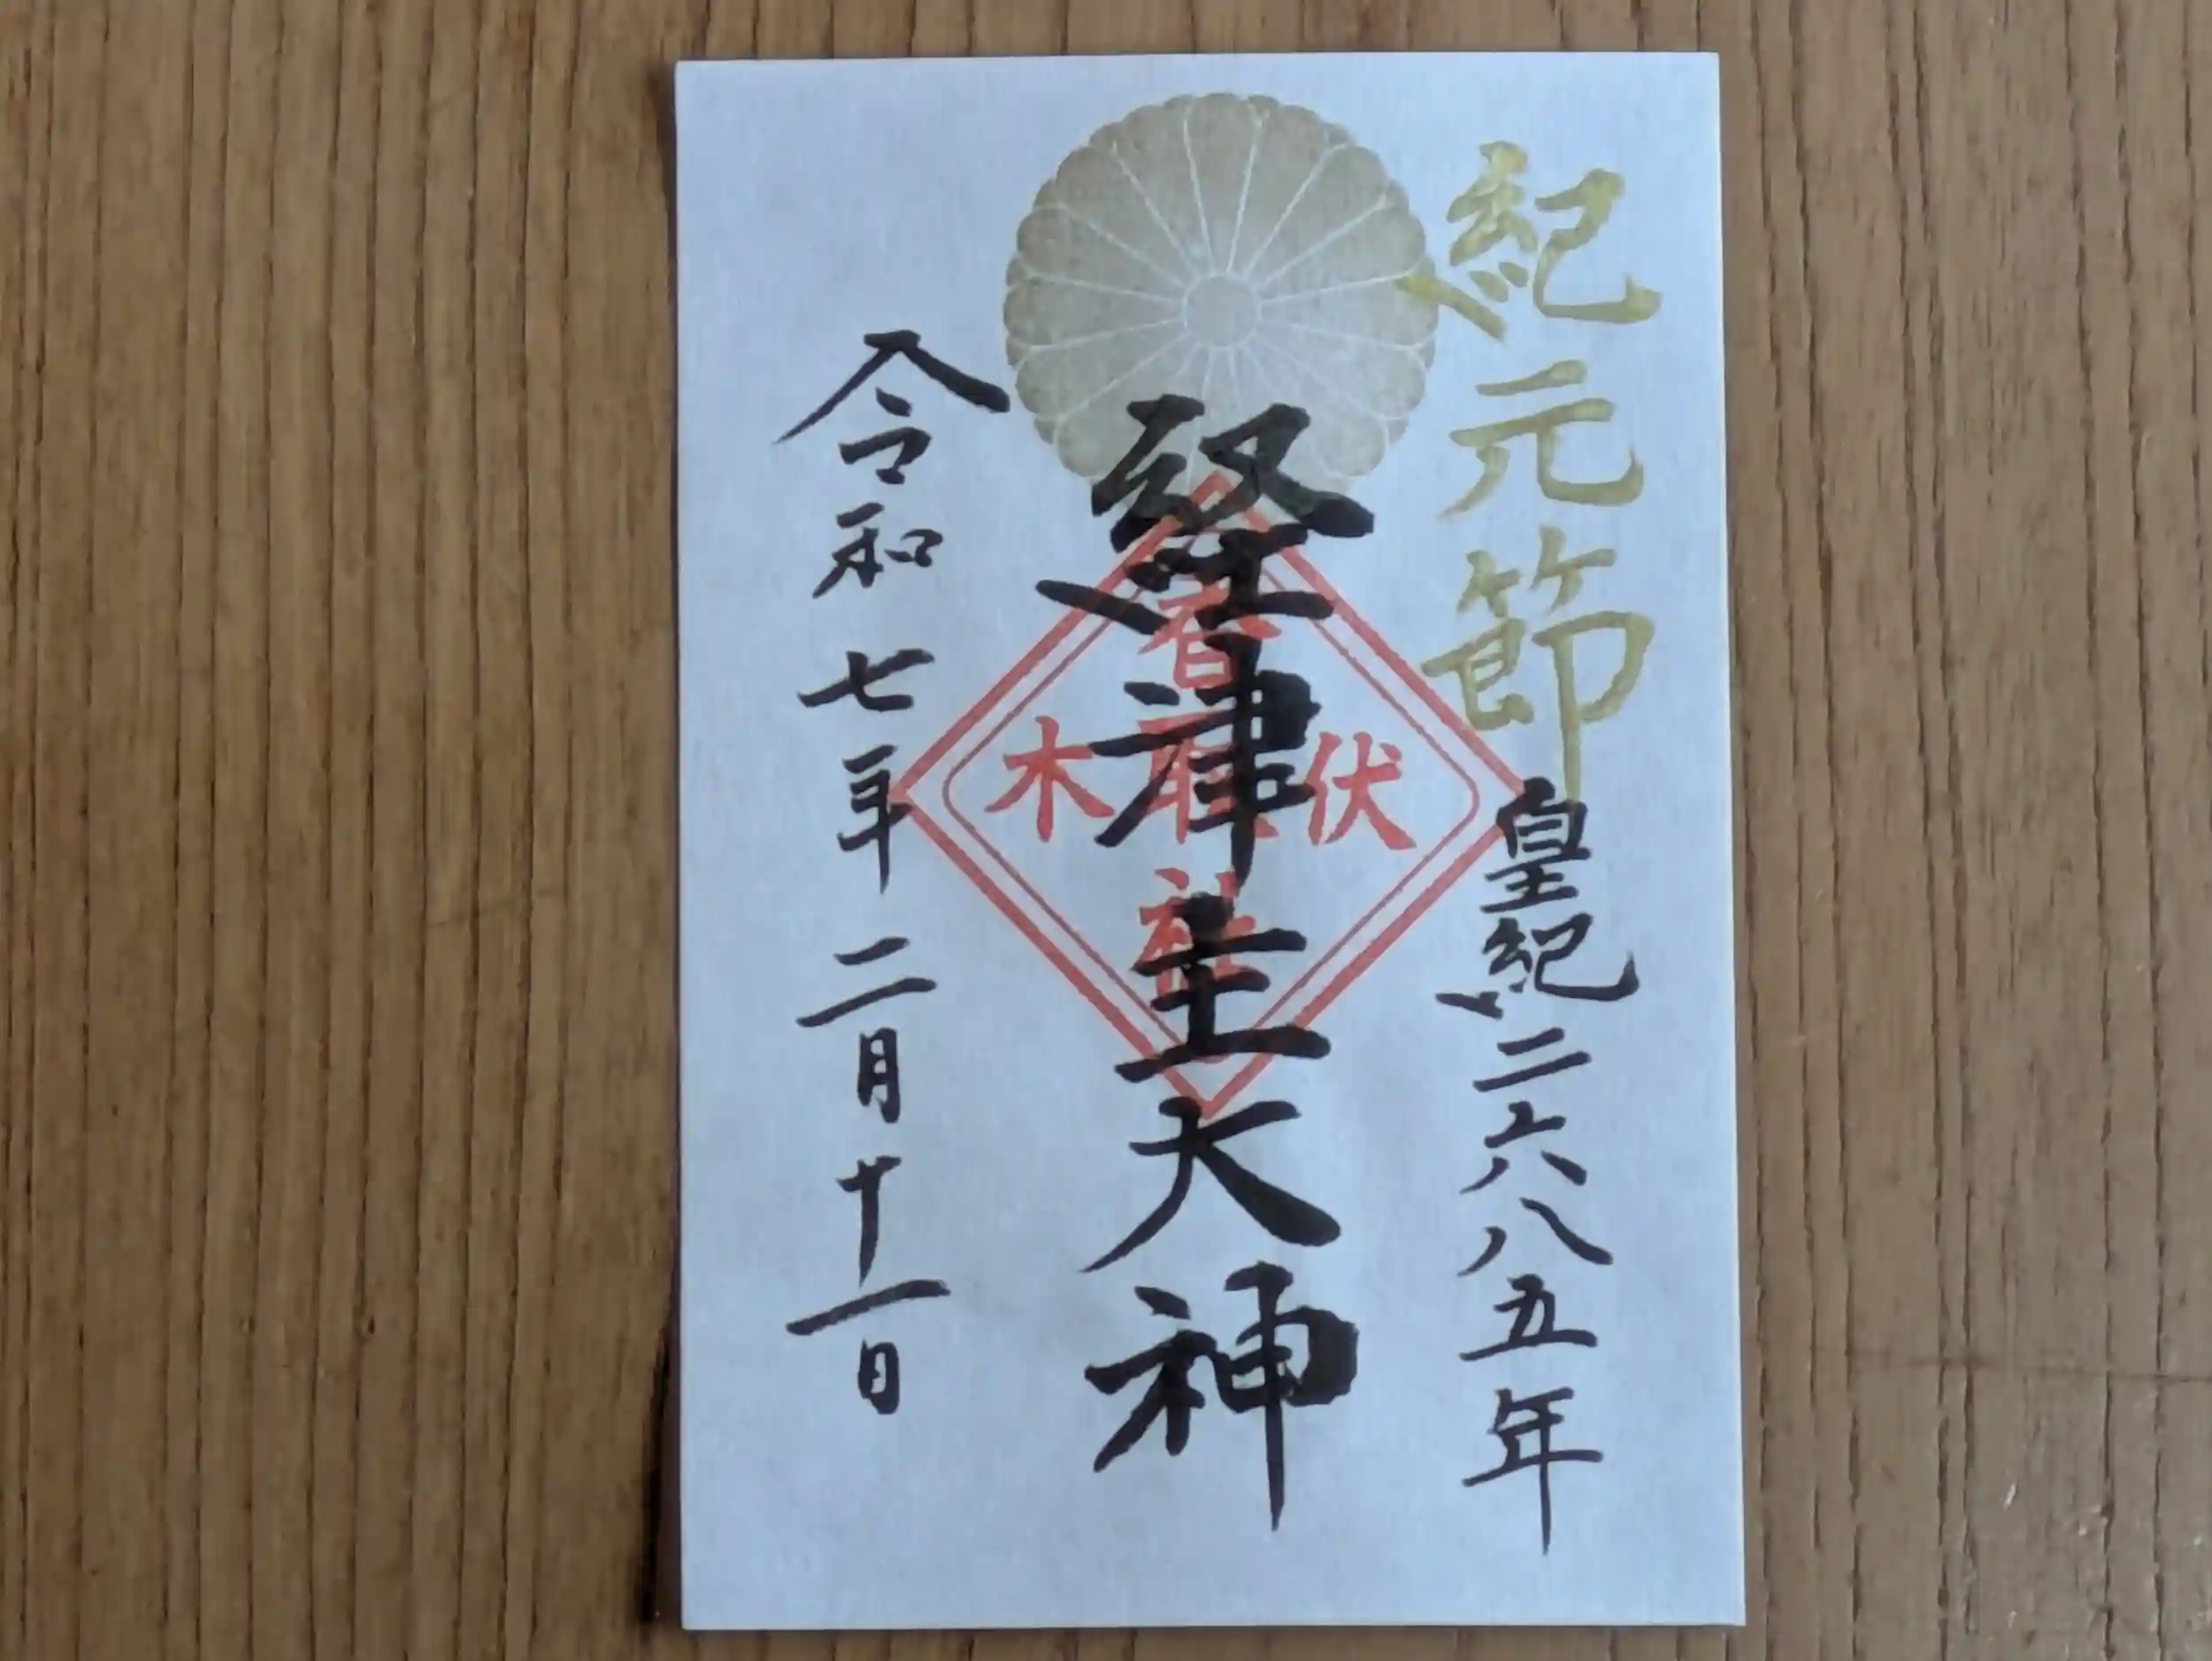 紀元節
皇紀二六八五年
経津主大神
伏木
香取社
令和七年二月十一日